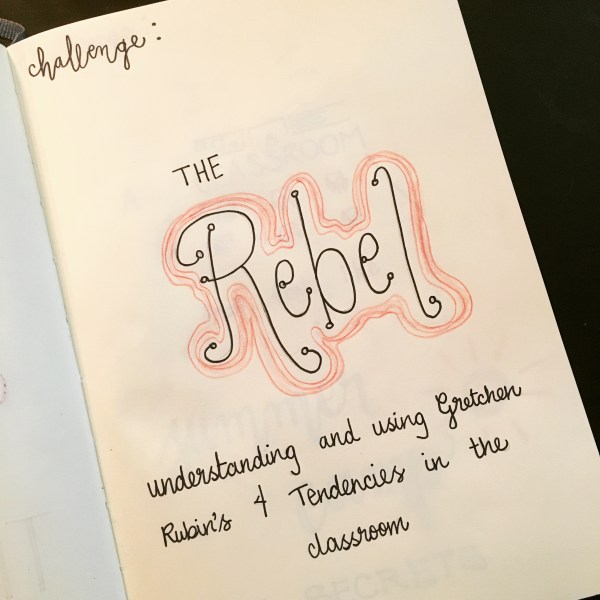 challenge:
THE
Rebel
understanding and using Gretchen
Rubin's 4 Tendencies in the
classroom